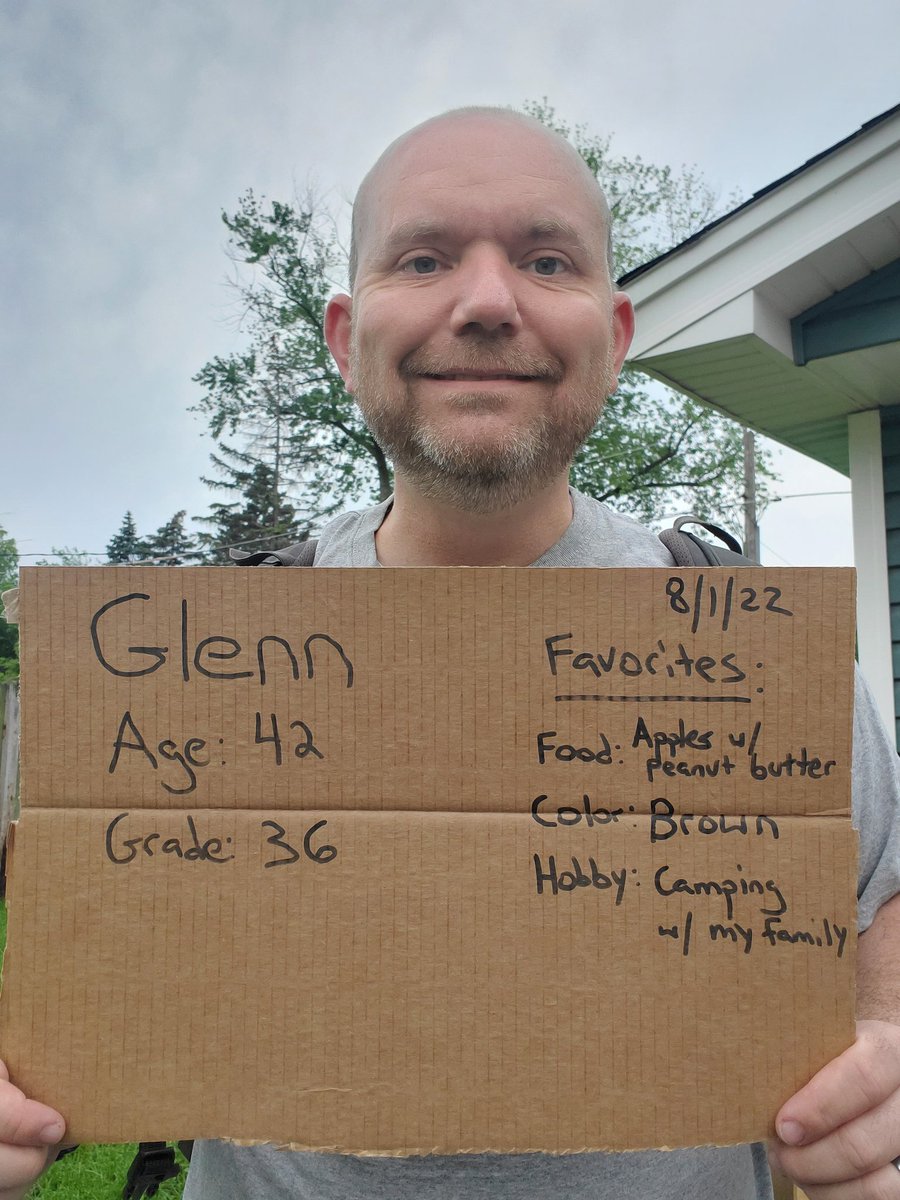 Glenn
Age: 42
Grade: 36
8/1/22
Favorites:
Food: Apples w/
peanut butter
Color: Brown
Hobby: Camping
w/ my family